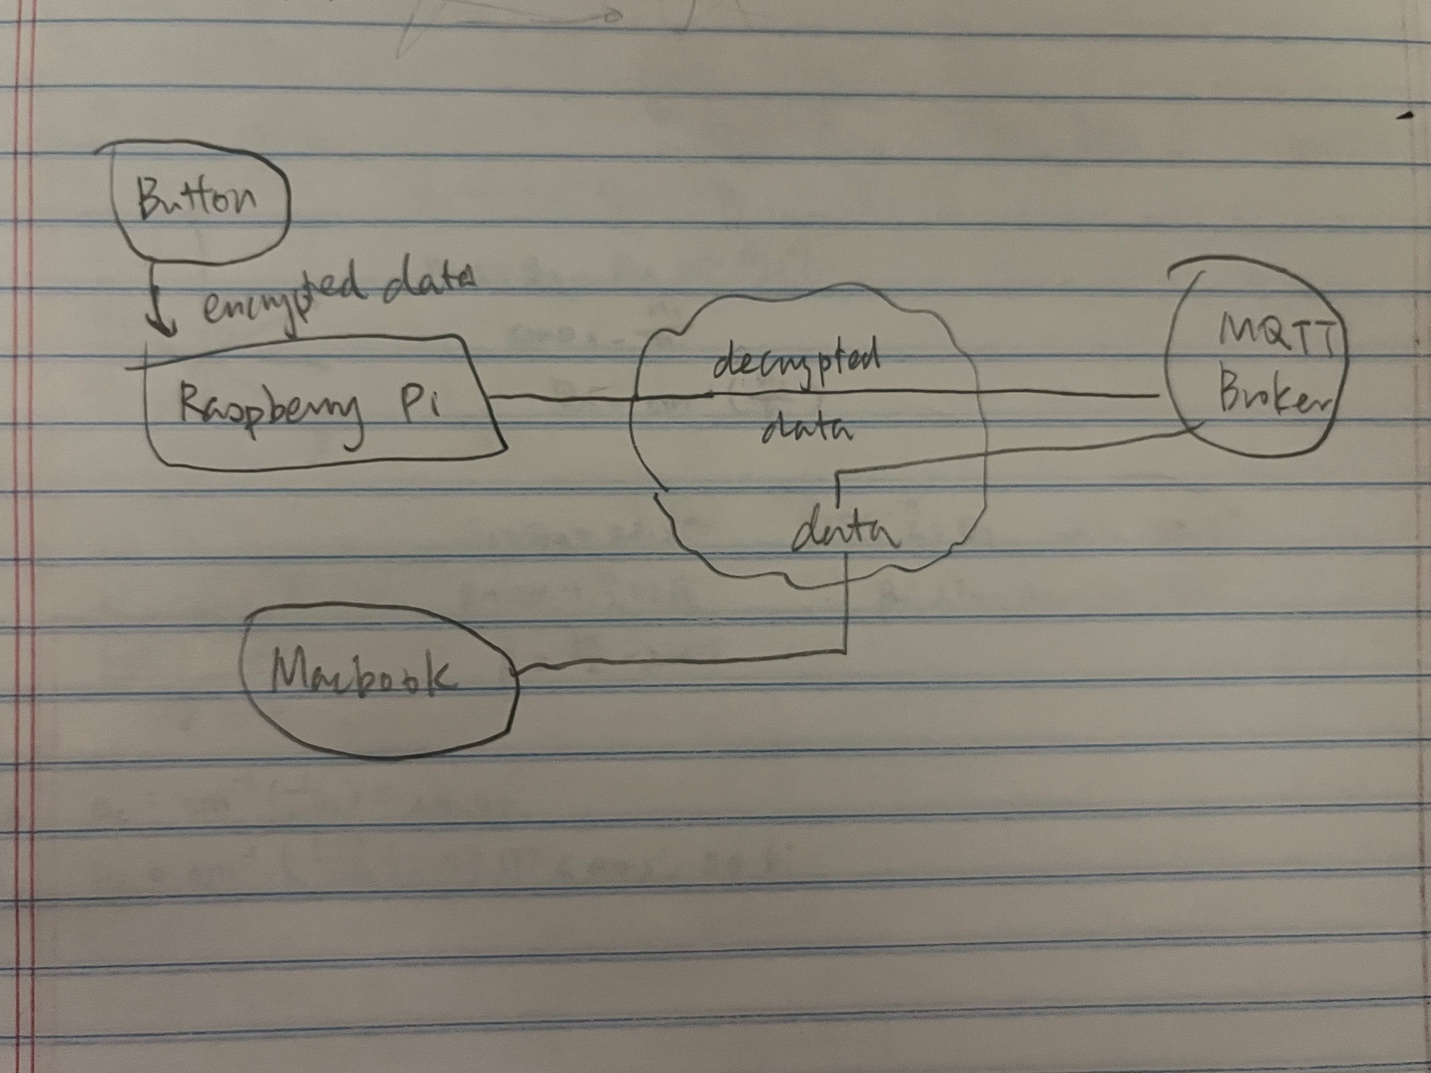 Button
encrypted data
Raspberry Pi
decrypted
data
MQTT
Broker
data
Macbook